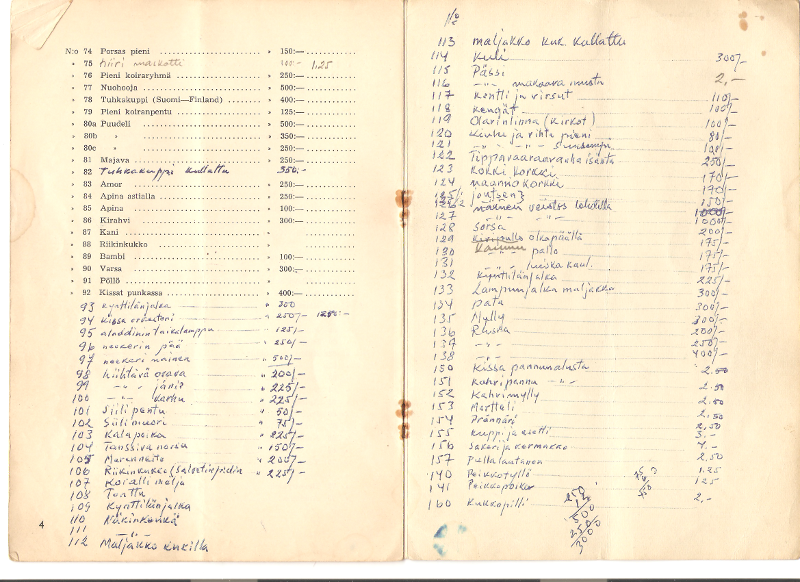 N:o 74 Porsas pieni » 150:—
» 75 hiiri maskotti 100:— 1.25
» 76 Pieni koiraryhmä » 250:—
» 77 Nuohooja » 500:—
» 78 Tuhkakuppi (Suomi—Finland) » 400:—
» 79 Pieni koiranpentu » 125:—
» 80a Puudeli » 500:—
» 80b » » 350:—
» 80c » » 250:—
» 81 Majava » 250:—
» 82 Tuhkakuppi kullattu 350.-
» 83 Amor » 250:—
» 84 Apina astialla » 250:—
» 85 Apina » 100:—
» 86 Kirahvi » 300:—
» 87 Kani »
» 88 Riikinkukko »
» 89 Bambi » 100:—
» 90 Varsa » 300:—
» 91 Pöllö »
» 92 Kissat punkassa » 400:—
93 kynttilänjalka » 300
94 Kissa orkesteri » 250/- 1250:-
95 aladdinin taikalamppu » 125/-
96 neekerin pää » 250/-
97 neekeri nainen » 500/-
98 hiihtävä orava » 200/-
99 -"- jänis » 225/-
100 -"- karhu » 225/-
101 Siili pentu » 50/-
102 Siili muori » 75/-
103 Kalapoika » 225/-
104 Tanssiva norsu » 150/-
105 Merenneito » 200/-
106 Riikinkukko » 225/-
107 Koralli malja
108 Tonttu
109 Kynttilänjalka
110 Näkinkenkä
111 -"-
112 Maljakko kukilla
4
113 maljakko kuk. kullattu
114 Kuli 300/-
115 Pässi
116 -"- makaava musta 2,-
117 Kentti ja virsut 110/-
118 Kengät 100/-
119 Olavinlinna (kirkot) 100/-
120 Kiulu ja vihta pieni 80/-
121 -"- -"- -"- suurempi 100/-
122 250/-
123 Kokki korkki 170/-
124 korkki 190/-
125/1 Joutsen 150/-
125/2 1000/-
127 -"- -"- 1000/-
128 Sorsa 200/-
129 olkapäällä 175/-
130 -"- pallo 175/-
131 175/-
132 Kynttilänjalka 225/-
133 Lampunjalka maljakko 300/-
134 Pata 300/-
135 Mylly 300/-
136 Ruska 200/-
137 -"- 250/-
138 -"- 400/-
150 Kissa pannunalusta 2.50
151 Kahvipannu -"- 2.50
152 Kahvimylly 2.50
153 Mortteli 2.50
154 2,50
155 Kuppi ja asetti 3.-
156 Sokeri ja kermakko 4.-
157 Pullalautanen 2.50
140 Peikkotyttö 1.25
141 Peikkopoika 125
160 Kukkopilli 2,-
250
12
500
250
3000